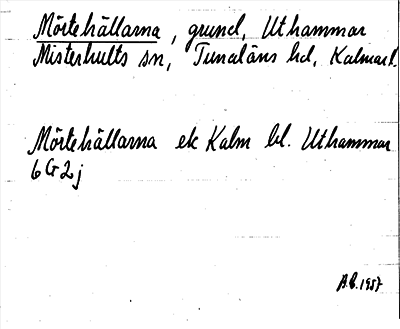 Mörtehällarna, grund, Uthammar
Misterhults sn, Tunaläns hd, Kalmar l.
Mörtehällarna ek Kalm bl. Uthammar
6 G 2 j
A.B. 1957